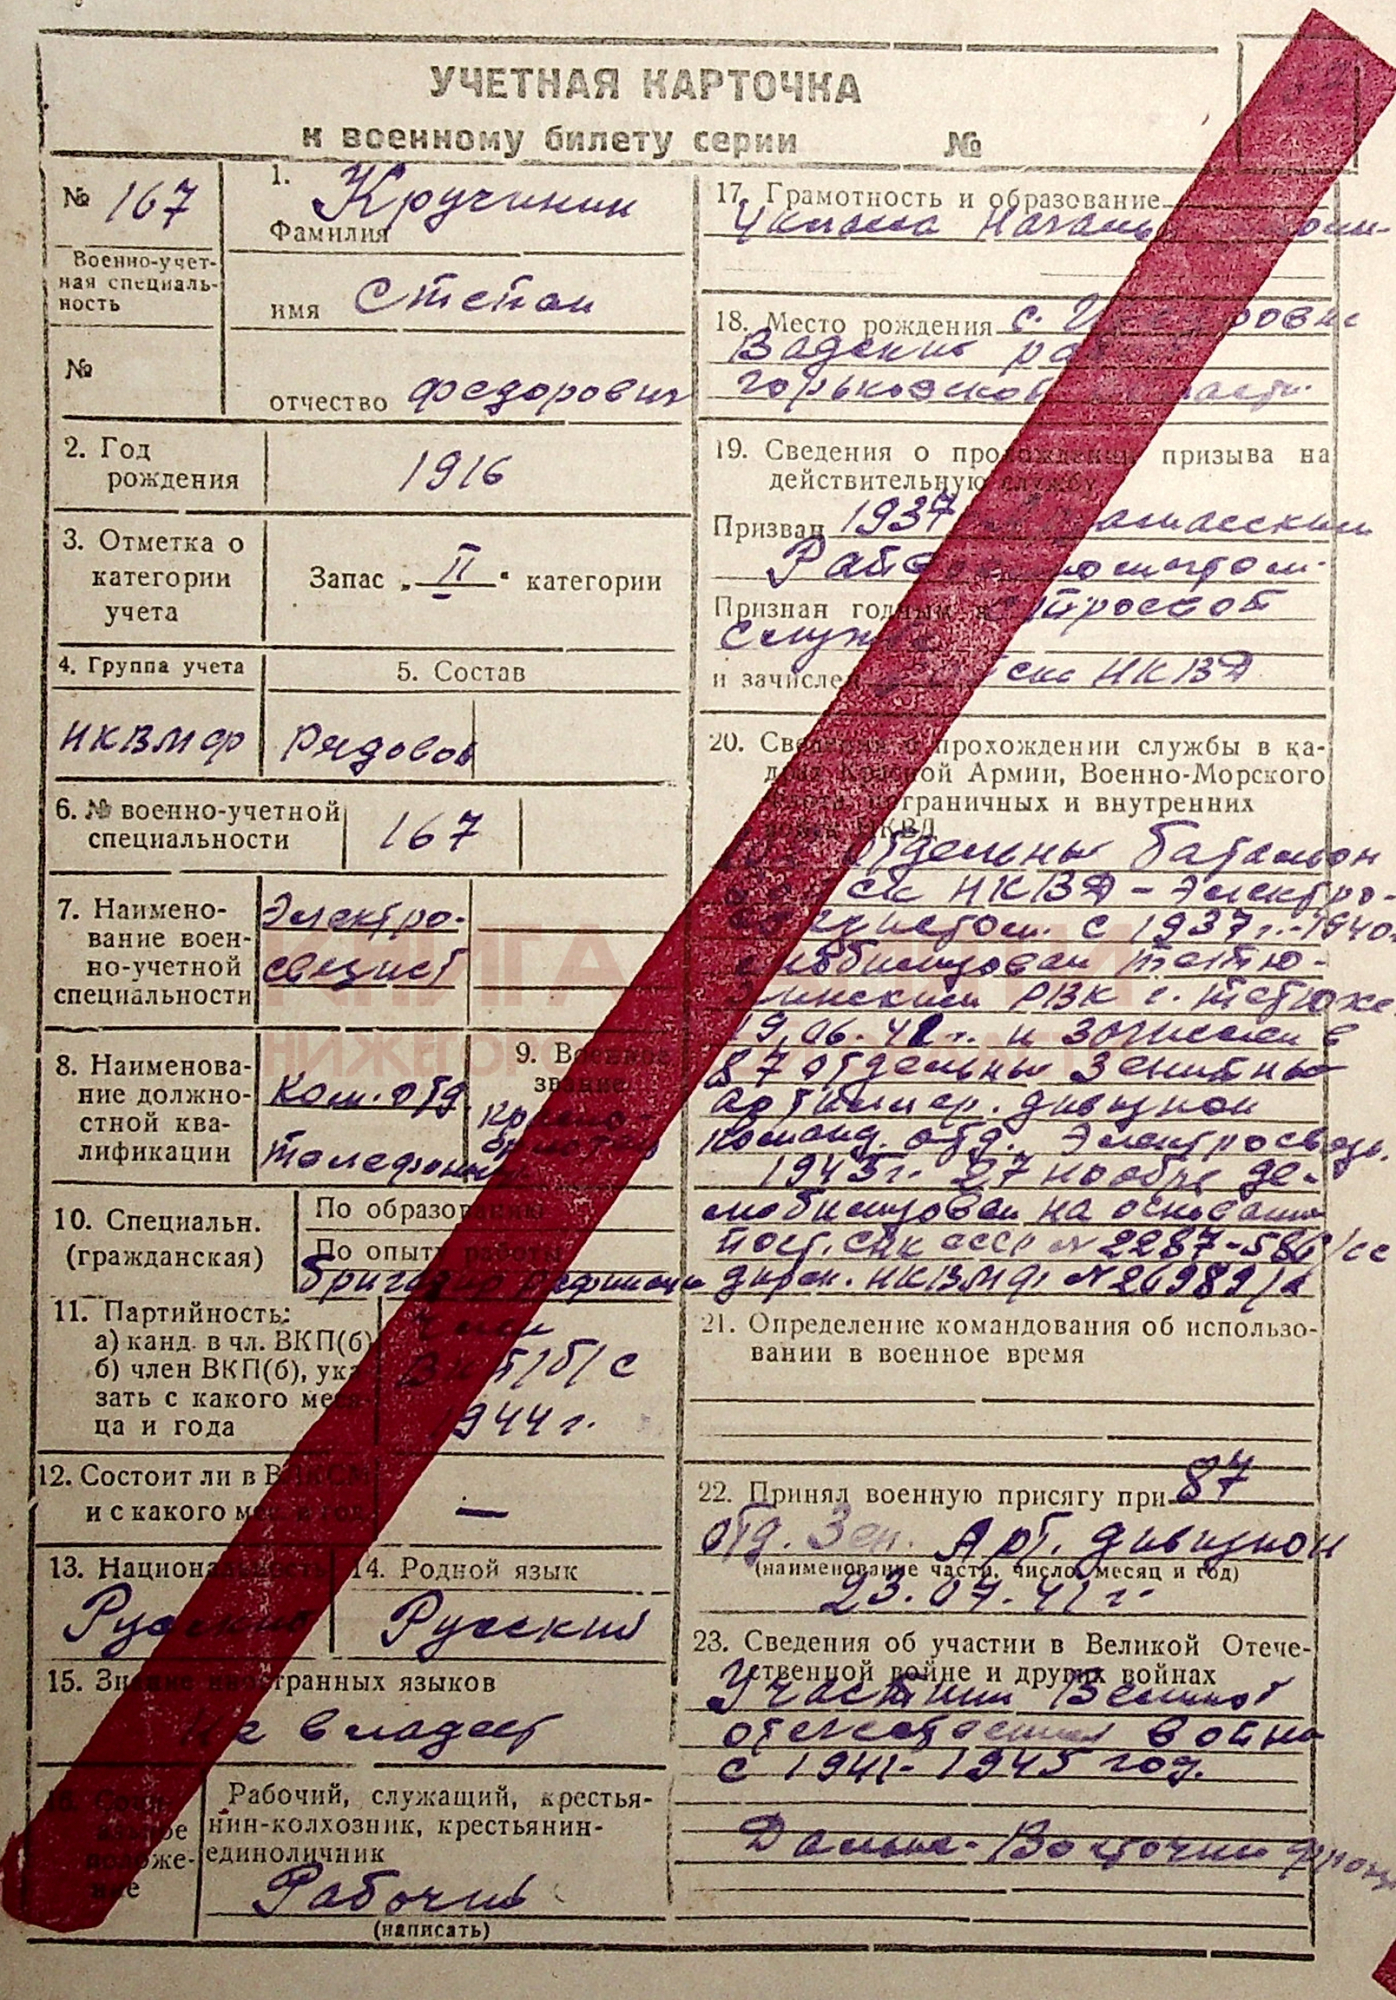 УЧЕТНАЯ КАРТОЧКА
к военному билету серии №
№ 167
Военно-учет-
ная специаль-
ность
№
1. Кручинин
Фамилия
имя Степан
отчество Федорович
2. Год
рождения
1916
3. Отметка о
категории
учета
Запас „II" категории
4. Группа учета
НКВМФ
5. Состав
Рядовой
6. № военно-учетной
специальности
167
7. Наимено-
вание воен-
но-учетной
специальности
Электро-
8. Наименова-
ние должно-
стной ква-
лификации
Ком. отд.
9. Военное
звание
10. Специальн.
(гражданская)
По образованию
По опыту работы
Бригадир
11. Партийность:
а) канд. в чл. ВКП(б)
б) член ВКП(б), ука-
зать с какого меся-
ца и года
Член
ВКП/б/ с
1944 г.
12. Состоит ли в ВЛКСМ
и с какого мес. и год.
—
13. Национальность
Русский
14. Родной язык
Русский
15. Знание иностранных языков
Не владеет
16. Соци-
альное
положе-
ние
Рабочий, служащий, крестья-
нин-колхозник, крестьянин-
единоличник
Рабочий
(написать)
17. Грамотность и образование
18. Место рождения с.
Вадский
Горьковской области
19. Сведения о прохождении призыва на
действительную службу
Призван 1937
Райвоенкоматом
Признан годным к строевой
службе
и зачислен в войска НКВД
20. Сведения о прохождении службы в ка-
драх Красной Армии, Военно-Морского
флота, пограничных и внутренних
войск НКВД
отдельный батальон
НКВД – электро-
с 1937 г.-1940
РВК г. Тетюхе
и зачислен в
87 отдельный зенитный
артиллер. дивизион
команд. отд. Электросвязи.
27 ноября де-
мобилизован на основании
пост. СНК СССР №2287-586/сс
дирек. НКВМФ №26989/
21. Определение командования об использо-
вании в военное время
22. Принял военную присягу при 87
отд. Зен. Арт. дивизион
(наименование части, число, месяц и год)
23.07.41 г.
23. Сведения об участии в Великой Отече-
ственной войне и других войнах
Участник Великой
отечественной войны
с 1941-1945 год.
Дальне-Восточный фронт
КНИГА ПАМЯТИ
НИЖЕГОРОДСКОЙ ОБЛАСТИ